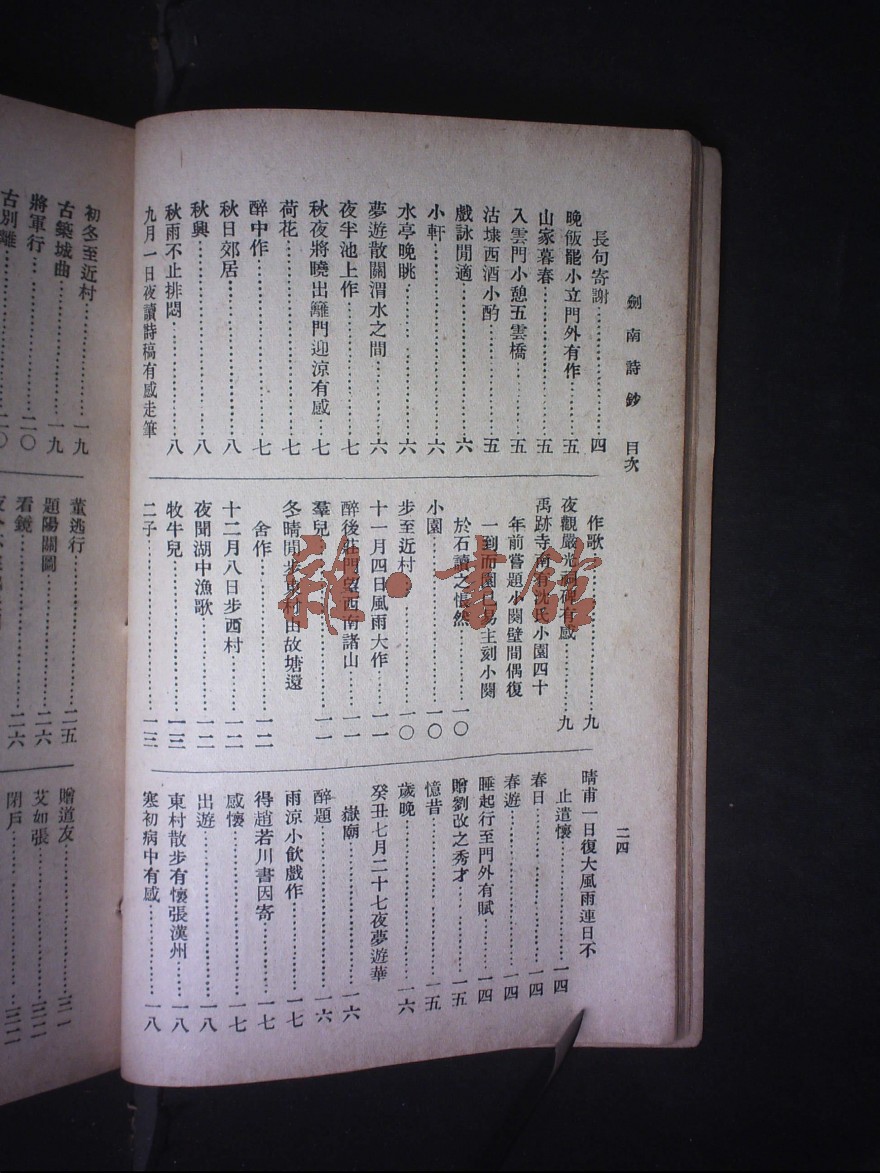 劍南詩鈔 目次 二四
長句寄謝…………四
晚飯罷小立門外有作…………五
山家暮春…………五
入雲門小憩五雲橋…………五
沽埭西酒小酌…………五
戲詠閒適…………六
小軒…………六
水亭晚眺…………六
夢遊散關渭水之間…………六
夜半池上作…………七
秋夜將曉出籬門迎涼有感…………七
荷花…………七
醉中作…………七
秋日郊居…………八
秋興…………八
秋雨不止排悶…………八
九月一日夜讀詩稿有感走筆
作歌…………九
夜觀嚴光祠碑有感…………九
禹跡寺南有沈氏小園四十
年前嘗題小闋壁間偶復
一到而園已易主刻小闋
於石讀之悵然…………一〇
小園…………一〇
步至近村…………一〇
十一月四日風雨大作…………一一
醉後莊門望西南諸山…………一一
羣兒…………一一
冬晴閒步東村由故塘還
舍作…………一二
十二月八日步西村…………一二
夜聞湖中漁歌…………一二
牧牛兒…………一三
二子…………一三
晴甫一日復大風雨連日不
止遣懷…………一四
春日…………一四
春遊…………一四
睡起行至門外有賦…………一四
贈劉改之秀才…………一五
憶昔…………一五
歲晚…………一六
癸丑七月二十七夜夢遊華
嶽廟…………一六
醉題…………一六
雨涼小飲戲作…………一七
得趙若川書因寄…………一七
感懷…………一七
出遊…………一八
東村散步有懷張漢州…………一八
寒初病中有感…………一八
初冬至近村…………一九
古築城曲…………一九
將軍行…………二〇
古別離…………二〇
董逃行…………二五
題陽關圖…………二六
看鏡…………二六
贈道友…………三一
艾如張…………三二
閉戶…………三二
雜·書館